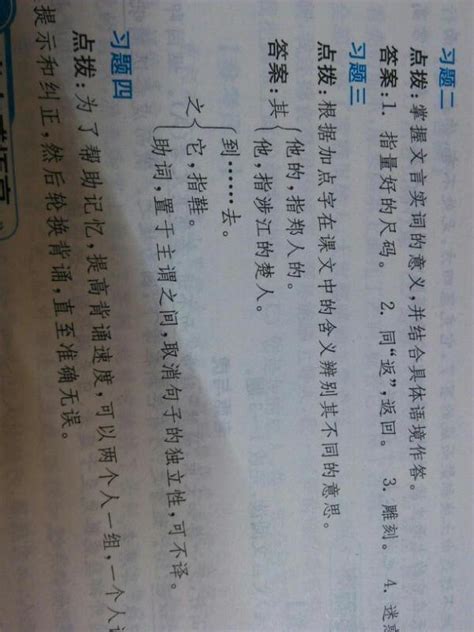 习题二
点拨:掌握文言实词的意义,并结合具体语境作答。
答案:1. 指量好的尺码。 2. 同“返”,返回。 3. 雕刻。 4. 迷惑
习题三
点拨:根据加点字在课文中的含义辨别其不同的意思。
答案:其{他的,指郑人的。
他,指涉江的楚人。
之{到……去。
它,指鞋。
助词,置于主谓之间,取消句子的独立性,可不译。
习题四
点拨:为了帮助记忆,提高背诵速度,可以两个人一组,一个人
提示和纠正,然后轮换背诵,直至准确无误。